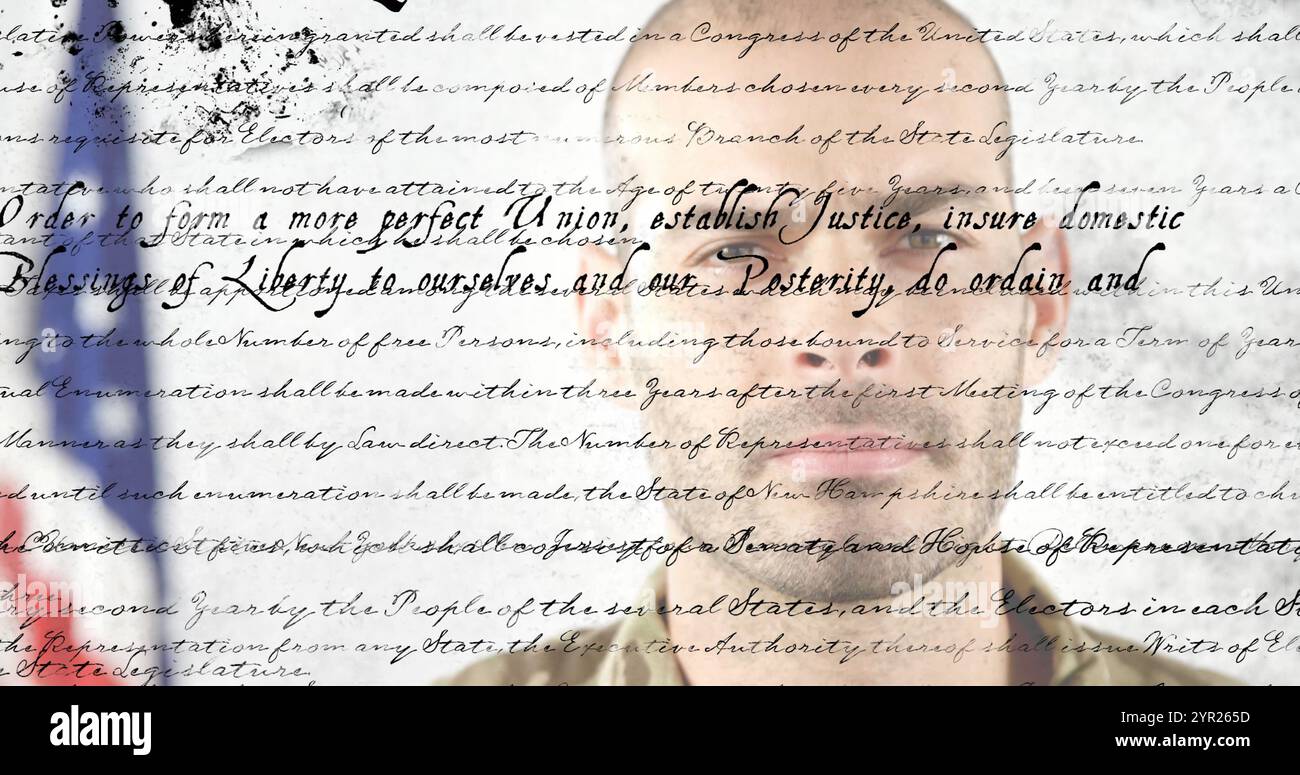 slative Powers herein granted shall be vested in a Congress of the United States, which shall
use of Representatives shall be composed of Members chosen every second Year by the People
ons requisite for Electors of the most numerous Branch of the State Legislature.
ntative who shall not have attained to the Age of twenty five Years, and been seven Years a
Order to form a more perfect Union, establish Justice, insure domestic
tant of that State in which he shall be chosen.
Blessings of Liberty to ourselves and our Posterity, do ordain and
Taxes shall be apportioned among the several States which may be included within this Un
ng to the whole Number of free Persons, including those bound to Service for a Term of Years
ual Enumeration shall be made within three Years after the first Meeting of the Congress of
Manner as they shall by Law direct. The Number of Representatives shall not exceed one for ev
d until such enumeration shall be made, the State of New Hampshire shall be entitled to ch
shall consist of a Senate and House of Representat
three
ry second Year by the People of the several States, and the Electors in each St
the Representation from any State, the Executive Authority thereof shall issue Writs of Ele
e State Legislature.
alamy
alamy
alamy
alamy
Image ID: 2YR265D
www.alamy.com